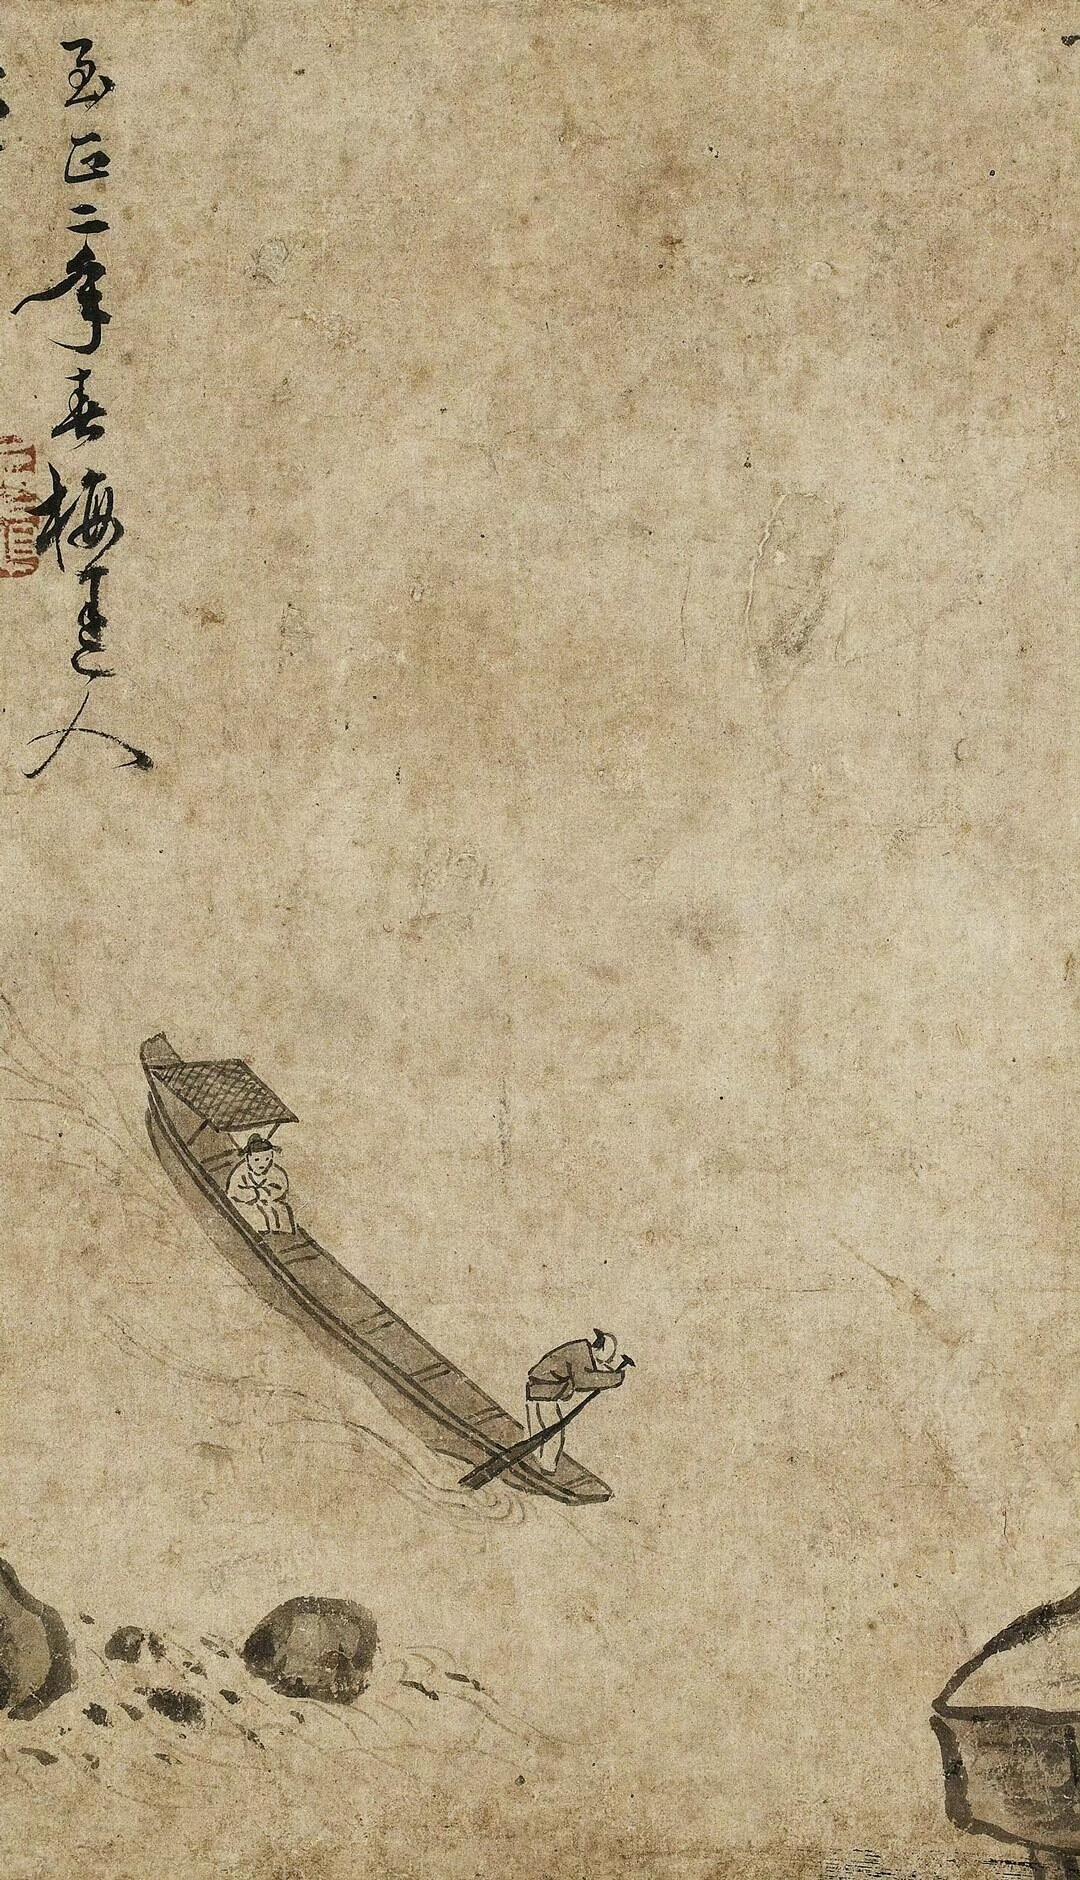 至正二年春梅道人